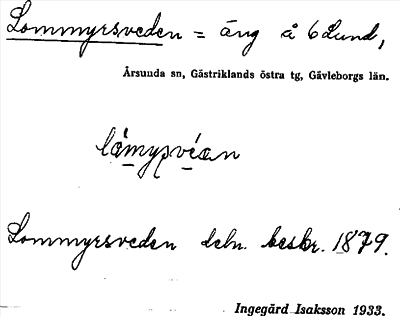 Lommyrsveden = äng å 6 Lund,
Årsunda sn, Gästriklands östra tg, Gävleborgs län.
Lommyrsveden deln. beskr. 1879.
Ingegärd Isaksson 1933.